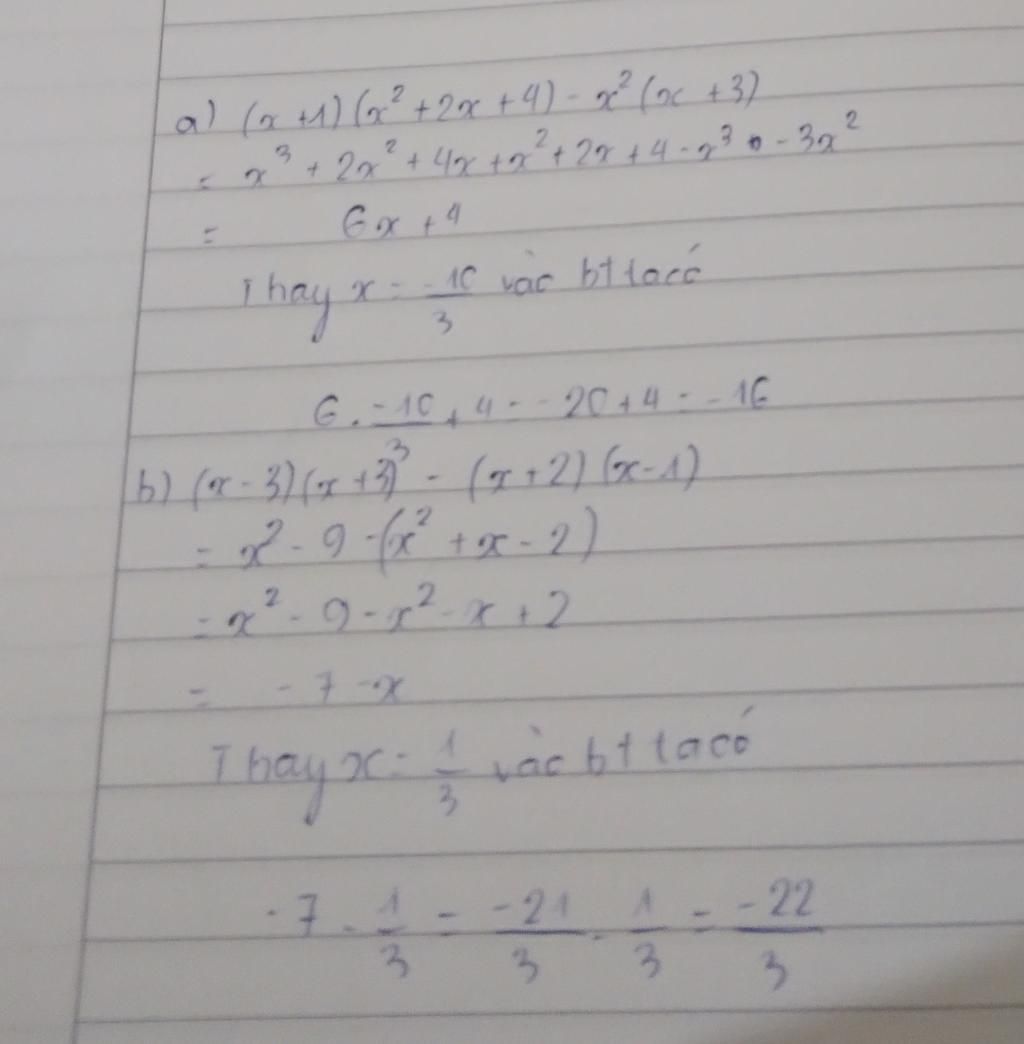 a) (x+1)(x²+2x+4) - x²(x+3)
= x³ + 2x² + 4x + x² + 2x + 4 - x³ - 3x²
= 6x + 4
Thay x = -10/3 vào bt ta có
6 . -10/3 + 4 = -20 + 4 = -16
b) (x-3)(x+3) - (x+2)(x-1)
= x² - 9 - (x² + x - 2)
= x² - 9 - x² - x + 2
= -7 - x
Thay x = 1/3 vào bt ta có
-7 - 1/3 = -21/3 - 1/3 = -22/3